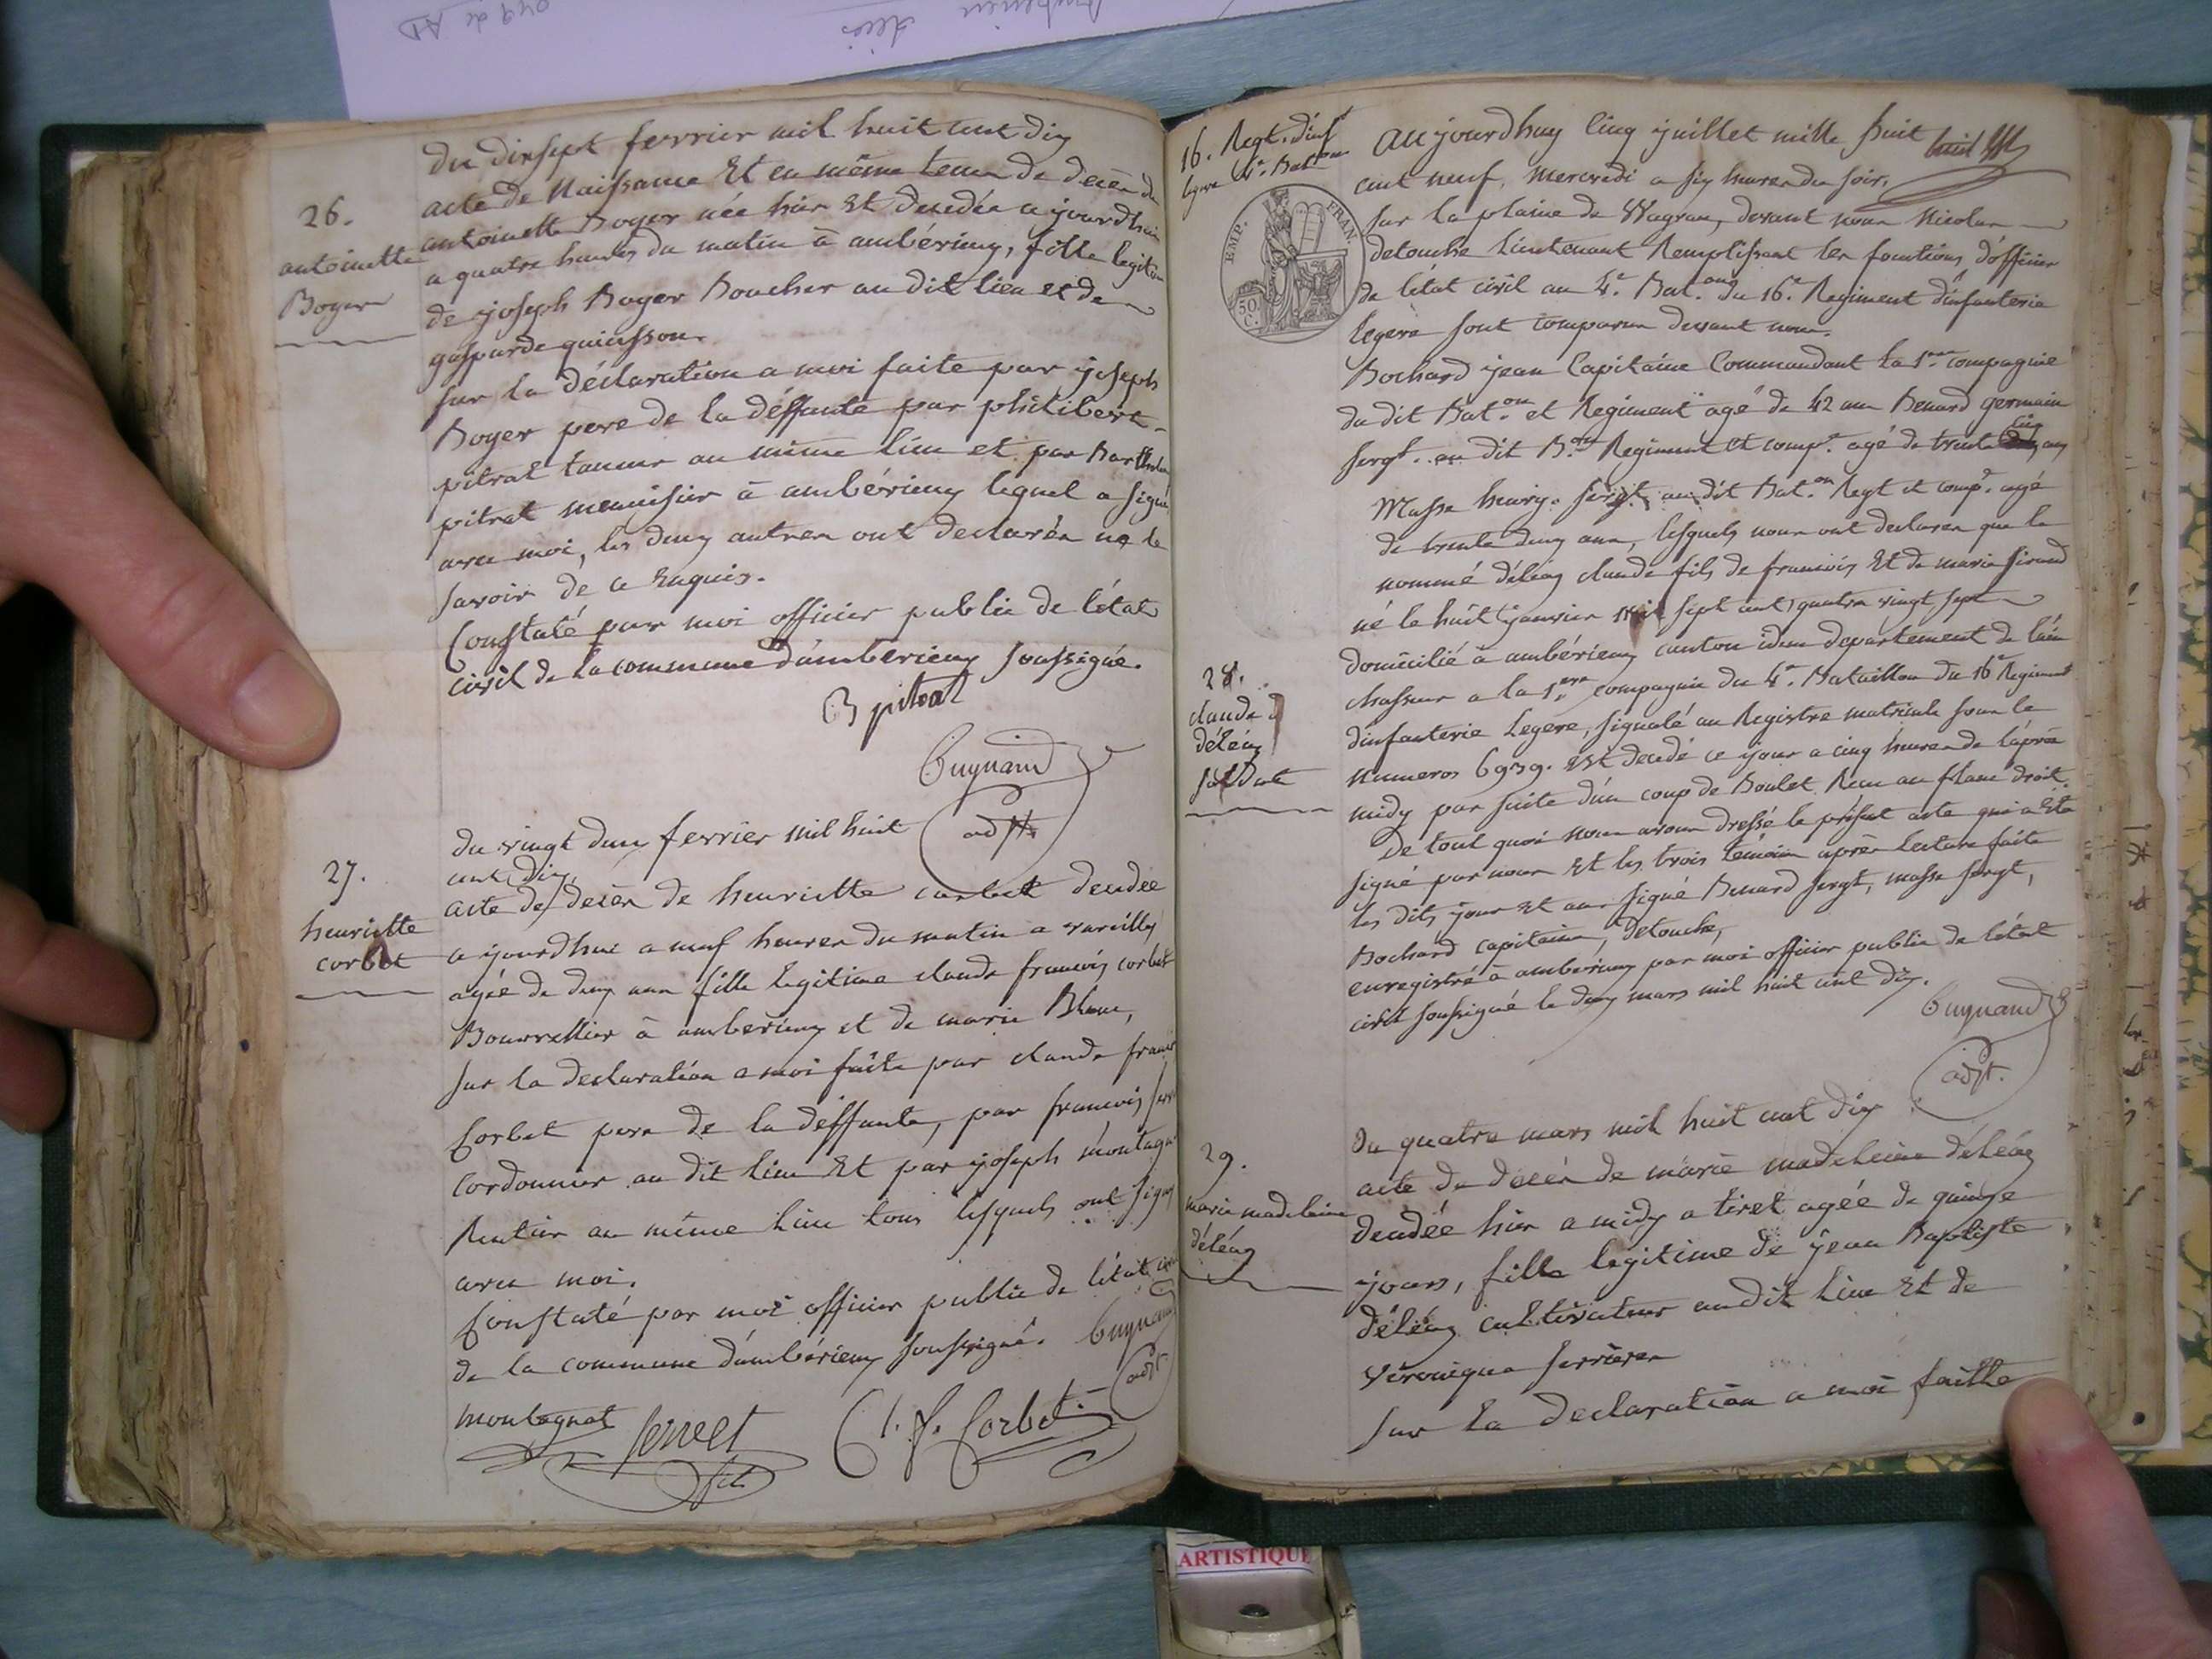 du dixsept fevrier mil huit cent dix
26.
antoinette
Boyer
acte de Naissance Et en même tems de decès de
antoinette Boyer née hier Et decedée ajourdhui
a quatre heures du matin à ambérieux, fille legitime
de joseph Boyer Boucher au dit lieu et de
gasparde quinsson.
sur la déclaration a moi faite par joseph
Boyer pere de la déffunte par philibert
pitrat tanneur au même lieu et par Barthelemi
pitrat menuisier à ambérieux lequel a signé
avec moi, les deux autres ont declarés ne le
savoir de ce Enquis.
Constaté par moi officier public de létat
civil de la commune d'amberieux soussigné.
B pitrat
Cuynaud
adjt.
27.
henriette
corbet
du vingt deux fevrier mil huit
cent dix.
acte de decès de henriette corbet decedée
ajourdhui a neuf heures du matin a vareilly
agée de deux ans fille legitime claude françois corbet
Bourrellier à amberieux et de marie Blanc,
sur la declaration a moi faite par claude françois
Corbet pere de la déffunte, par françois
Cordonnier au dit lieu Et par joseph montagnat
Rentier au même lieu tous lesquels ont signé
avec moi.
Constaté par moi officier public de létat civil
de la commune d'ambérieux soussigné. Cuynaud
adjt
montagnat ferret C. f. Corbet
fils
16. Regt. dinf.
legere 4e. Baton
EMP. FRAN.
50 C.
aujourdhuy cinq juillet mille huit
cent neuf, mercredi a six heures du soir,
sur la plaine de Wagram, devant nous Nicolas
detouche Lieutenant Remplissant les fonctions d'officier
de létat civil au 4e. Baton du 16e. Regiment dinfanterie
legere sont comparus devant nous.
Bochard jean Capitaine Commandant la 1ere compagnie
du dit Baton et Regiment agé de 42 ans Benard germain
sergt. au dit Bon Regiment et compe. agé de trente cinq ans
Masse henry sergt. au dit Baton Regt et compe. agé
de trente deux ans, lesquels nous ont declarés que le
nommé déléaz claude fils de francois Et de marie girond
né le huit janvier mil sept cent quatre vingt sept
domicilié à ambérieux canton idem departement de lain
28.
claude
déléaz
soldat
chasseur a la 1ere compagnie du 4e. Bataillon du 16e Regiment
dinfanterie Legere, signalé au Registre matricule sous le
numeros 6939. Est decedé ce jour a cinq heures de laprès
midy par suite dun coup de Boulet Recu au flanc droit.
De tout quoi nous avons dressé le présent acte qui a Eté
signé par nous Et les trois témoins après lecture faite
les dits jour Et an. signé Benard sergt, masse sergt,
Bochard capitaine, detouche,
enregistré à ambérieux par moi officier public de létat
civil soussigné le deux mars mil huit cent dix.
Cuynaud
adjt.
29.
marie madeleine
déléaz
Du quatre mars mil huit cent dix
acte de decès de marie madeleine déléaz
decedée hier a midy a tiret agée de quinze
jours, fille legitime de jean Baptiste
déléaz cultivateur audit lieu Et de
véronique ferrieres
sur la declaration a moi faitte
ARTISTIQUE